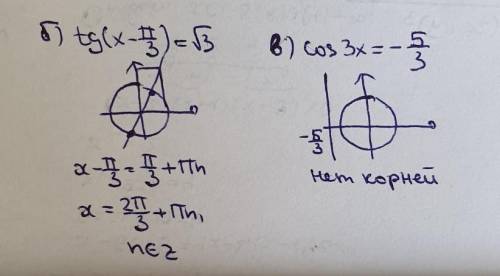 б) tg(x-π/3)=√3
x-π/3=π/3+πn
x=2π/3+πn,
n∈z
в) cos3x=-5/3
-5/3
нет корней